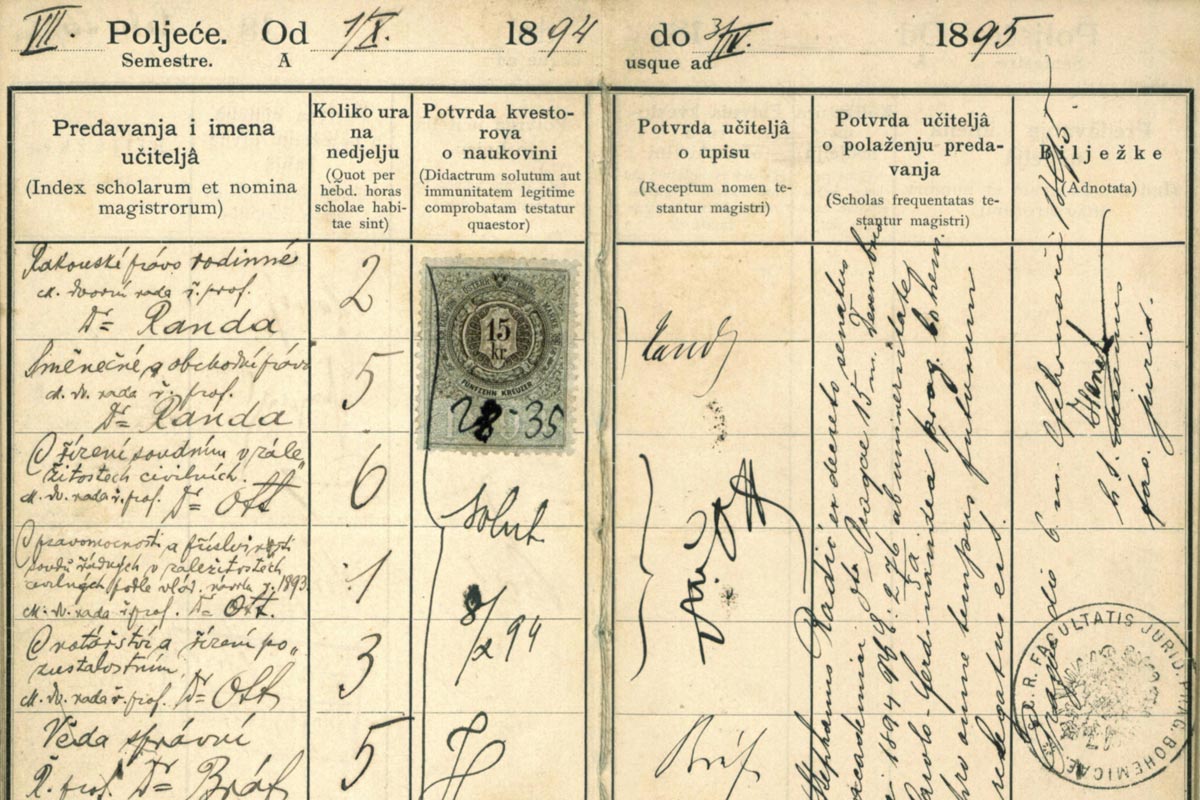 VII. Poljeće. Od 1/X. 1894 do 31/IV. 1895
Semestre. A usque ad
Predavanja i imena
učiteljâ
(Index scholarum et nomina
magistrorum)
Koliko ura
na
nedjelju
(Quot per
hebd. horas
scholae habi-
tae sint)
Potvrda kvesto-
rova
o naukovini
(Didactrum solutum aut
immunitatem legitime
comprobatam testatur
quaestor)
Potvrda učiteljâ
o upisu
(Receptum nomen te-
stantur magistri)
Potvrda učiteljâ
o polaženju preda-
vanja
(Scholas frequentatas te-
stantur magistri)
Bilježke
(Adnotata)
Rakouské právo rodinné
c. dvorní rada ř. prof.
Dr Randa
2
Směnečné a obchodní právo
c. dv. rada ř. prof.
Dr Randa
5
O řízení soudním v zále-
žitostech civilních.
c. dv. rada ř. prof. Dr Ott
6
O pravomocnosti a příslušnosti
soudů řádných v záležitostech
civilných podle vlád. návrhu z r. 1893
c. dv. rada ř. prof. Dr Ott.
1
O notářství a řízení po-
zůstalostním
c. dv. rada ř. prof. Dr Ott
3
Věda správní
Ř. prof. Dr Bráf
5
15
kr.
FÜNFZEHN KREUZER
28-35
Solut
8/X 94
Randa
Dr Ott
Bráf
Stephanus Radić ex decreto senatus
academici dto Pragae 15 m. Decembris
1894 No 276 ab universitate
Carolo-Ferdinandea prag. bohem.
pro omne tempus futurum
relegatus est.
Pragae die 6 m. Februarii 1895
h. t. decanus
fac. jurid.
FACULTATIS JURID. PRAG. BOHEMICAE